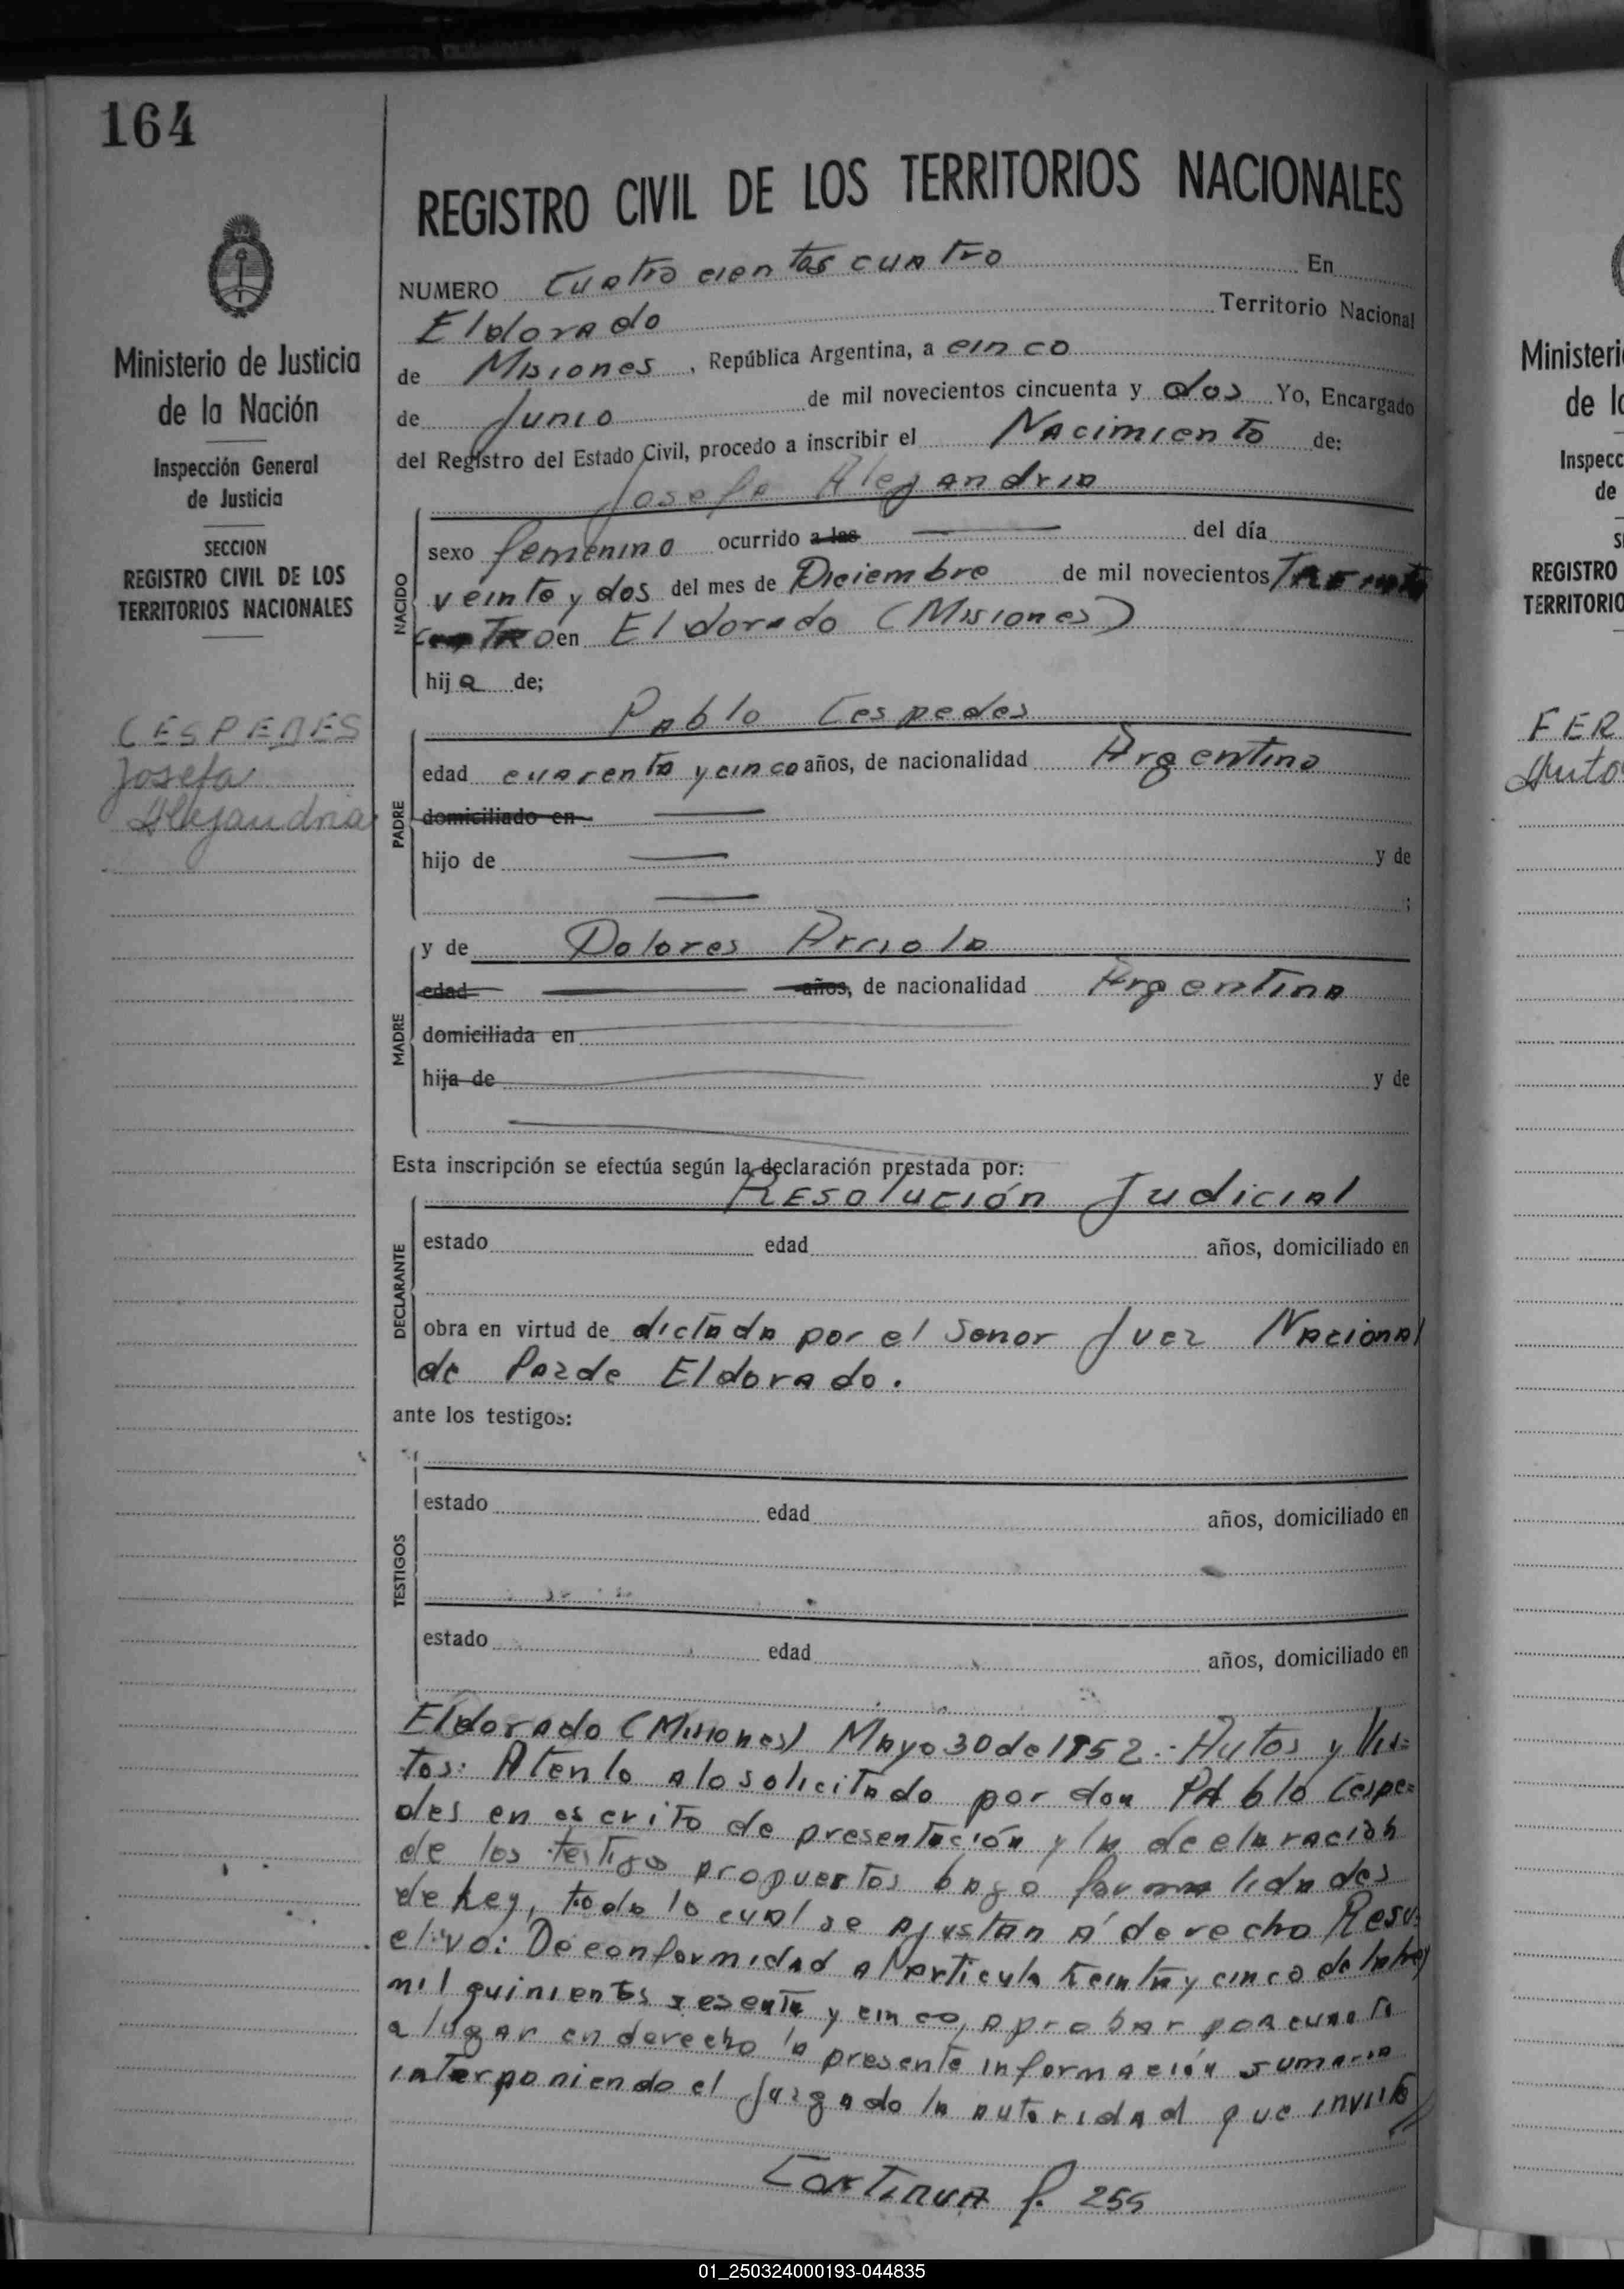 164
REGISTRO CIVIL DE LOS TERRITORIOS NACIONALES
NUMERO Cuatro cientos cuatro En
Eldorado Territorio Nacional
de Misiones, República Argentina, a cinco
de Junio de mil novecientos cincuenta y dos Yo, Encargado
del Registro del Estado Civil, procedo a inscribir el Nacimiento de:
Josefa Alejandria
Ministerio de Justicia
de la Nación
Inspección General
de Justicia
SECCION
REGISTRO CIVIL DE LOS
TERRITORIOS NACIONALES
CESPEDES
Josefa
Alejandria
NACIDO
sexo femenino ocurrido a las del día
veinte y dos del mes de Diciembre de mil novecientos Treinta
cuatro en Eldorado (Misiones)
hija de;
Pablo Cespedes
PADRE
edad cuarenta y cinco años, de nacionalidad Argentino
domiciliado en
hijo de y de
;
MADRE
y de Dolores Arriola
edad años, de nacionalidad Argentina
domiciliada en
hija de y de
Esta inscripción se efectúa según la declaración prestada por:
Resolución Judicial
DECLARANTE
estado edad años, domiciliado en
obra en virtud de dictada por el Senor Juez Nacional
de Paz de Eldorado.
ante los testigos:
TESTIGOS
estado edad años, domiciliado en
estado edad años, domiciliado en
Eldorado (Misiones) Mayo 30 de 1952.- Autos y Vis=
tos: Atento a lo solicitado por don Pablo Cespe=
des en escrito de presentación y la declaración
de los testigos propuestos bajo formalidades
de Ley, todo lo cual se ajustan á derecho Resu=
elvo: De conformidad al articulo treinta y cinco de la ley
mil quinientos sesenta y cinco, aprobar por cuanto
a lugar en derecho la presente información sumaria
interponiendo el Juzgado la autoridad que inviste
CONTINUA f. 255
Ministeri
de l
Inspecc
de
REGISTRO
TERRITORIO
FER
Anto
01_250324000193-044835